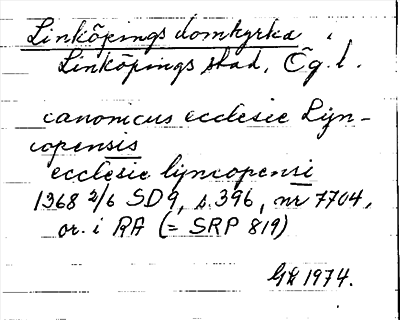 Linköpings domkyrka,
Linköpings stad, Ög.l.
canonicus ecclesie Lyn-
copensis
ecclesie lyncopensi
1368 2/6 SD9, s. 396, nr 7704,
or. i RA (= SRP 819)
1974.